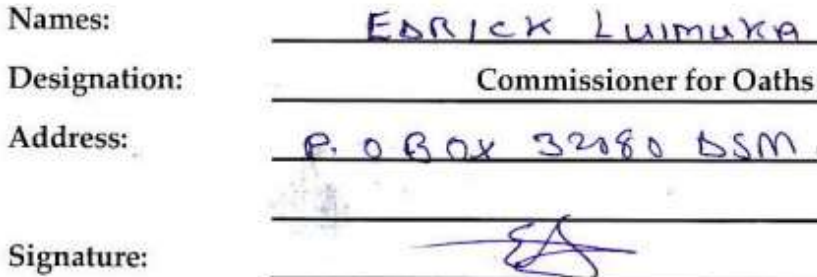 Names: EDRICK LUIMUKA
Designation: Commissioner for Oaths
Address: P. O BOX 32080 DSM
Signature: